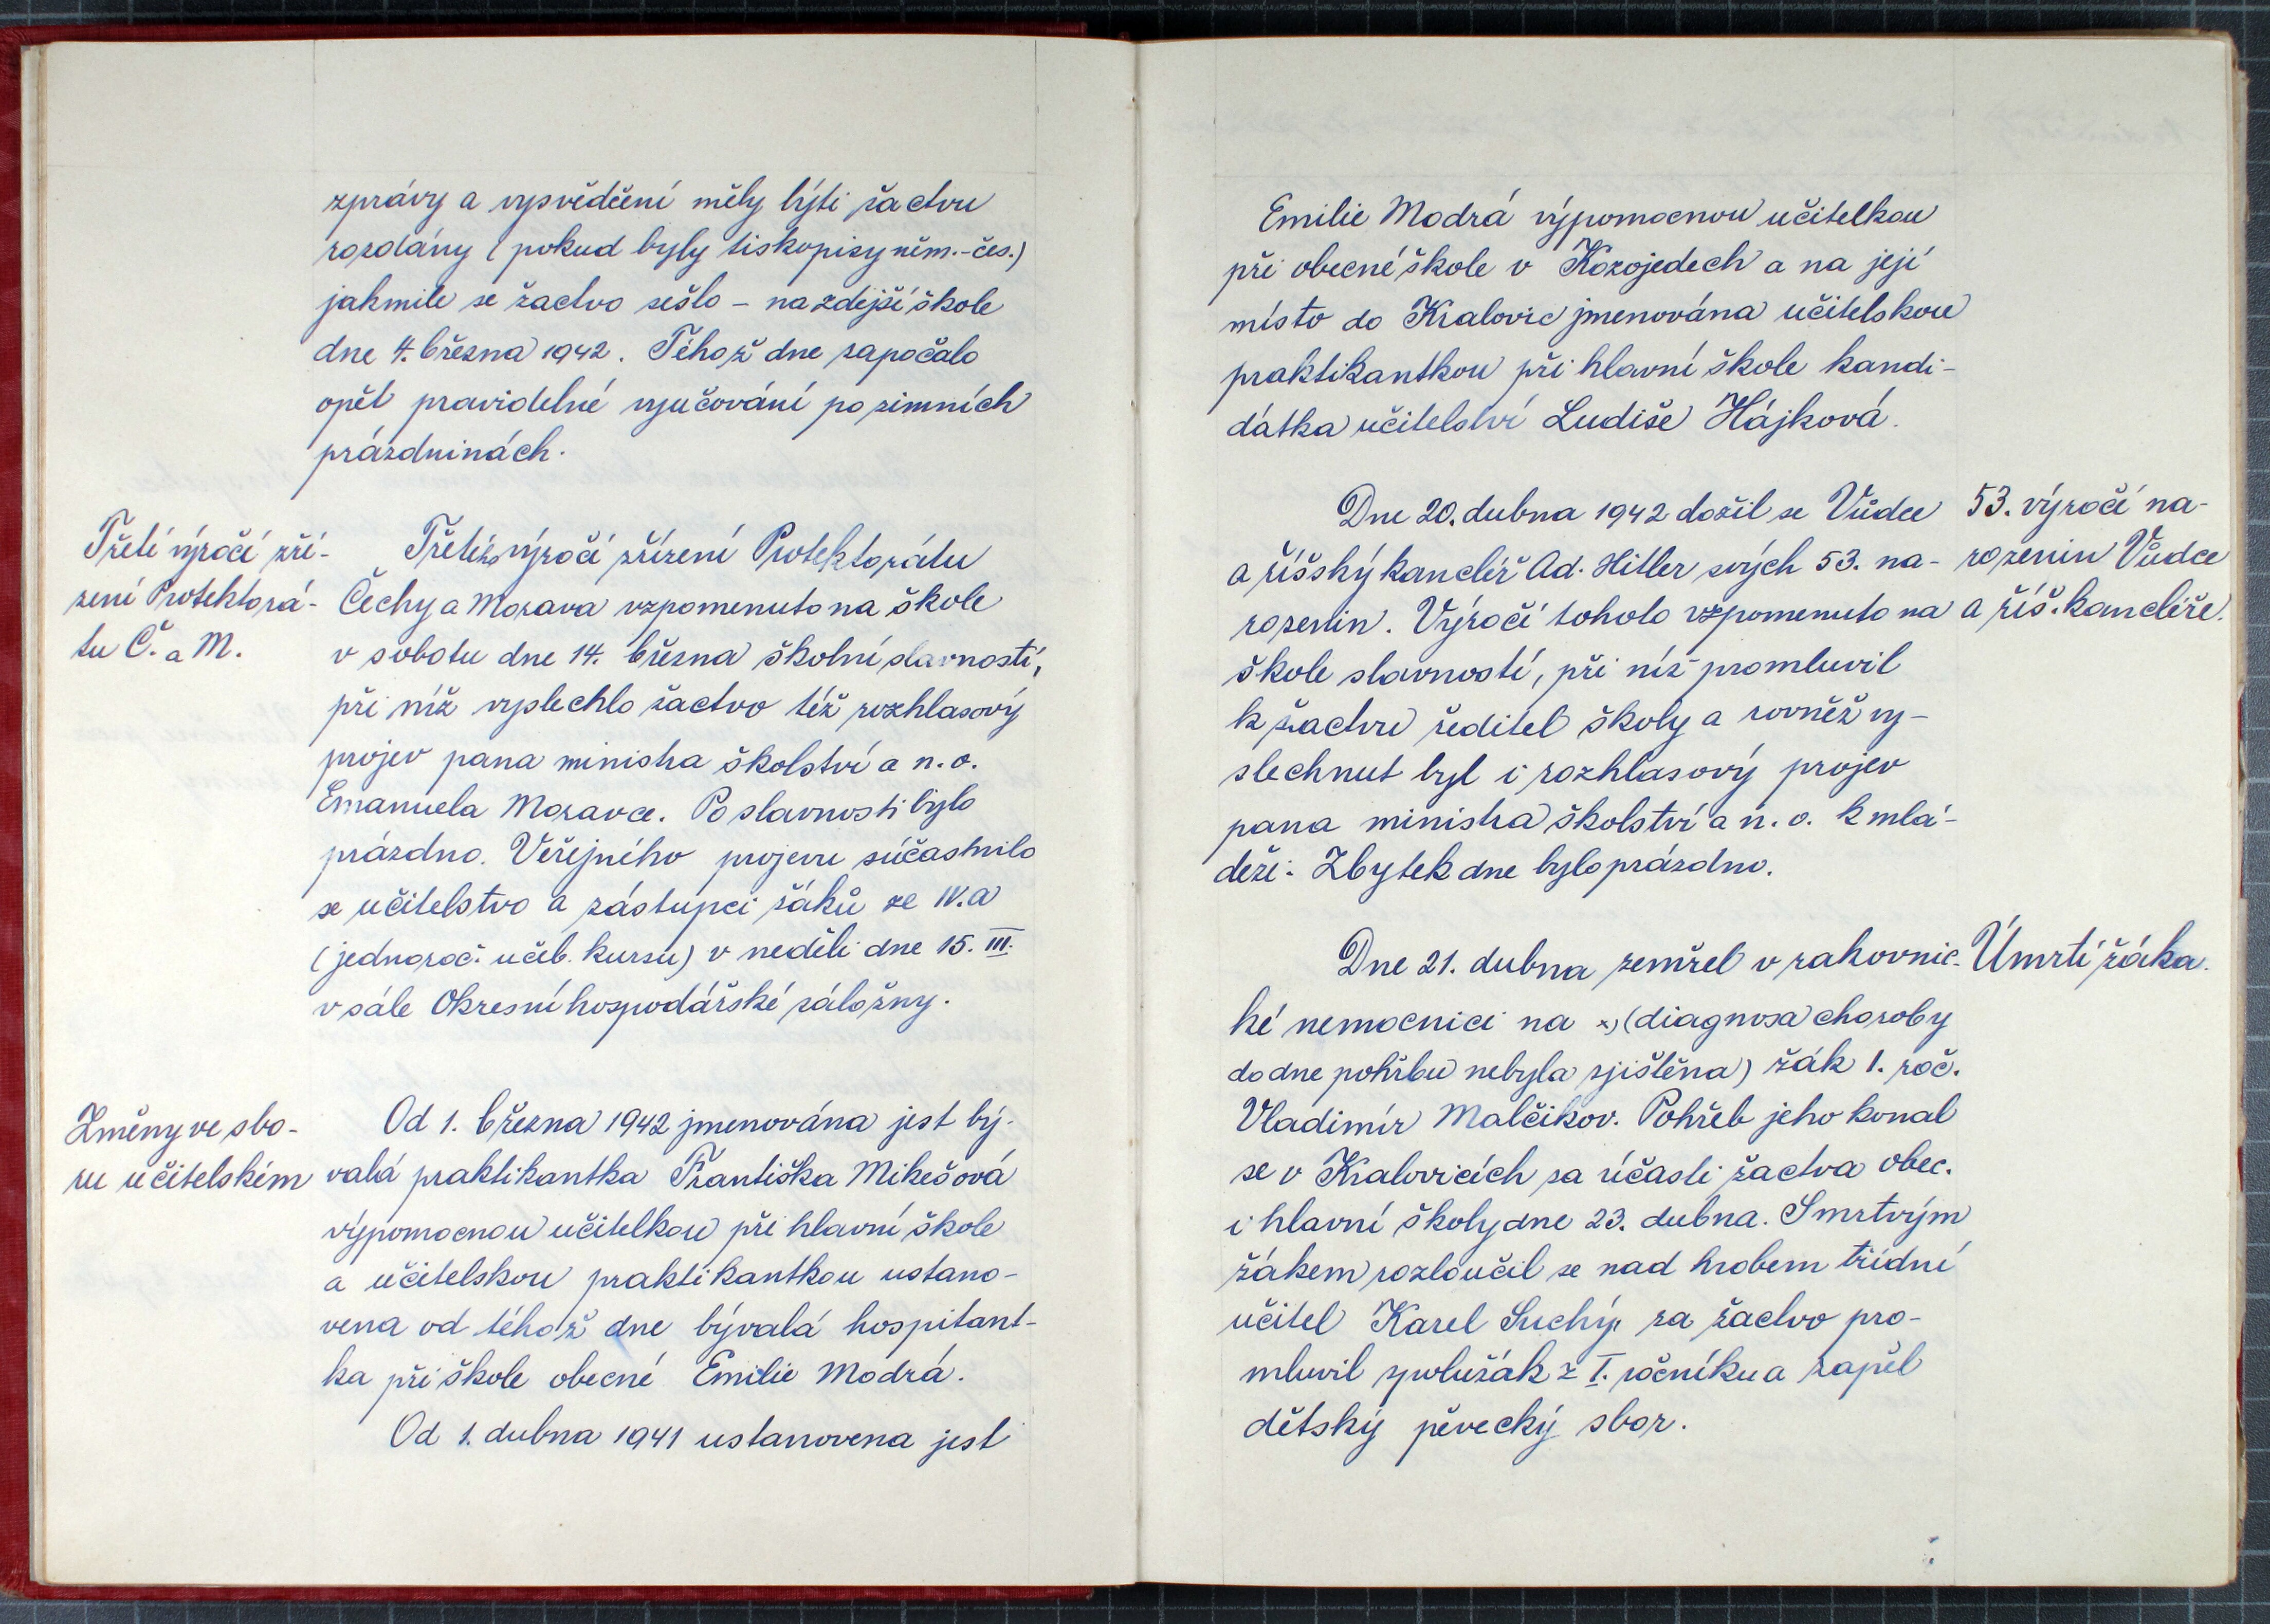 zprávy a vysvědčení měly býti žactvu
rozdány (pokud byly tiskopisy něm.-čes.)
jakmile se žactvo sešlo – na zdejší škole
dne 4. března 1942. Téhož dne započalo
opět pravidelné vyučování po zimních
prázdninách.
Třetí výročí zří-
zení Protektorá-
tu Č. a M.
Třetího výročí zřízení Protektorátu
Čechy a Morava vzpomenuto na škole
v sobotu dne 14. března školní slavností,
při níž vyslechlo žactvo též rozhlasový
projev pana ministra školství a n. o.
Emanuela Moravce. Po slavnosti bylo
prázdno. Veřejného projevu súčastnilo
se učitelstvo a zástupci žáků ze IV.a
(jednoroč. učeb. kursu) v neděli dne 15. III.
v sále Okresní hospodářské záložny.
Změny ve sbo-
ru učitelském
Od 1. března 1942 jmenována jest bý-
valá praktikantka Františka Mikešová
výpomocnou učitelkou při hlavní škole
a učitelskou praktikantkou ustano-
vena od téhož dne bývalá hospitant-
ka při škole obecné Emilie Modrá.
Od 1. dubna 1941 ustanovena jest
Emilie Modrá výpomocnou učitelkou
při obecné škole v Kozojedech a na její
místo do Kralovic jmenována učitelskou
praktikantkou při hlavní škole kandi-
dátka učitelství Ludiše Hájková.
Dne 20. dubna 1942 dožil se Vůdce
a říšský kancléř Ad. Hitler svých 53. na-
rozenin. Výročí tohoto vzpomenuto na
škole slavností, při níž promluvil
k žactvu ředitel školy a rovněž vy-
slechnut byl i rozhlasový projev
pana ministra školství a n. o. k mlá-
deži. Zbytek dne bylo prázdno.
53. výročí na-
rozenin Vůdce
a říš. kancléře.
Dne 21. dubna zemřel v rakovnic-
ké nemocnici na x) (diagnosa choroby
do dne pohřbu nebyla zjištěna) žák 1. roč.
Vladimír Malčikov. Pohřeb jeho konal
se v Kralovicích za účasti žactva obec.
i hlavní školy dne 23. dubna. S mrtvým
žákem rozloučil se nad hrobem třídní
učitel Karel Suchý, za žactvo pro-
mluvil spolužák z I. ročníku a zapěl
dětský pěvecký sbor.
Úmrtí žáka.